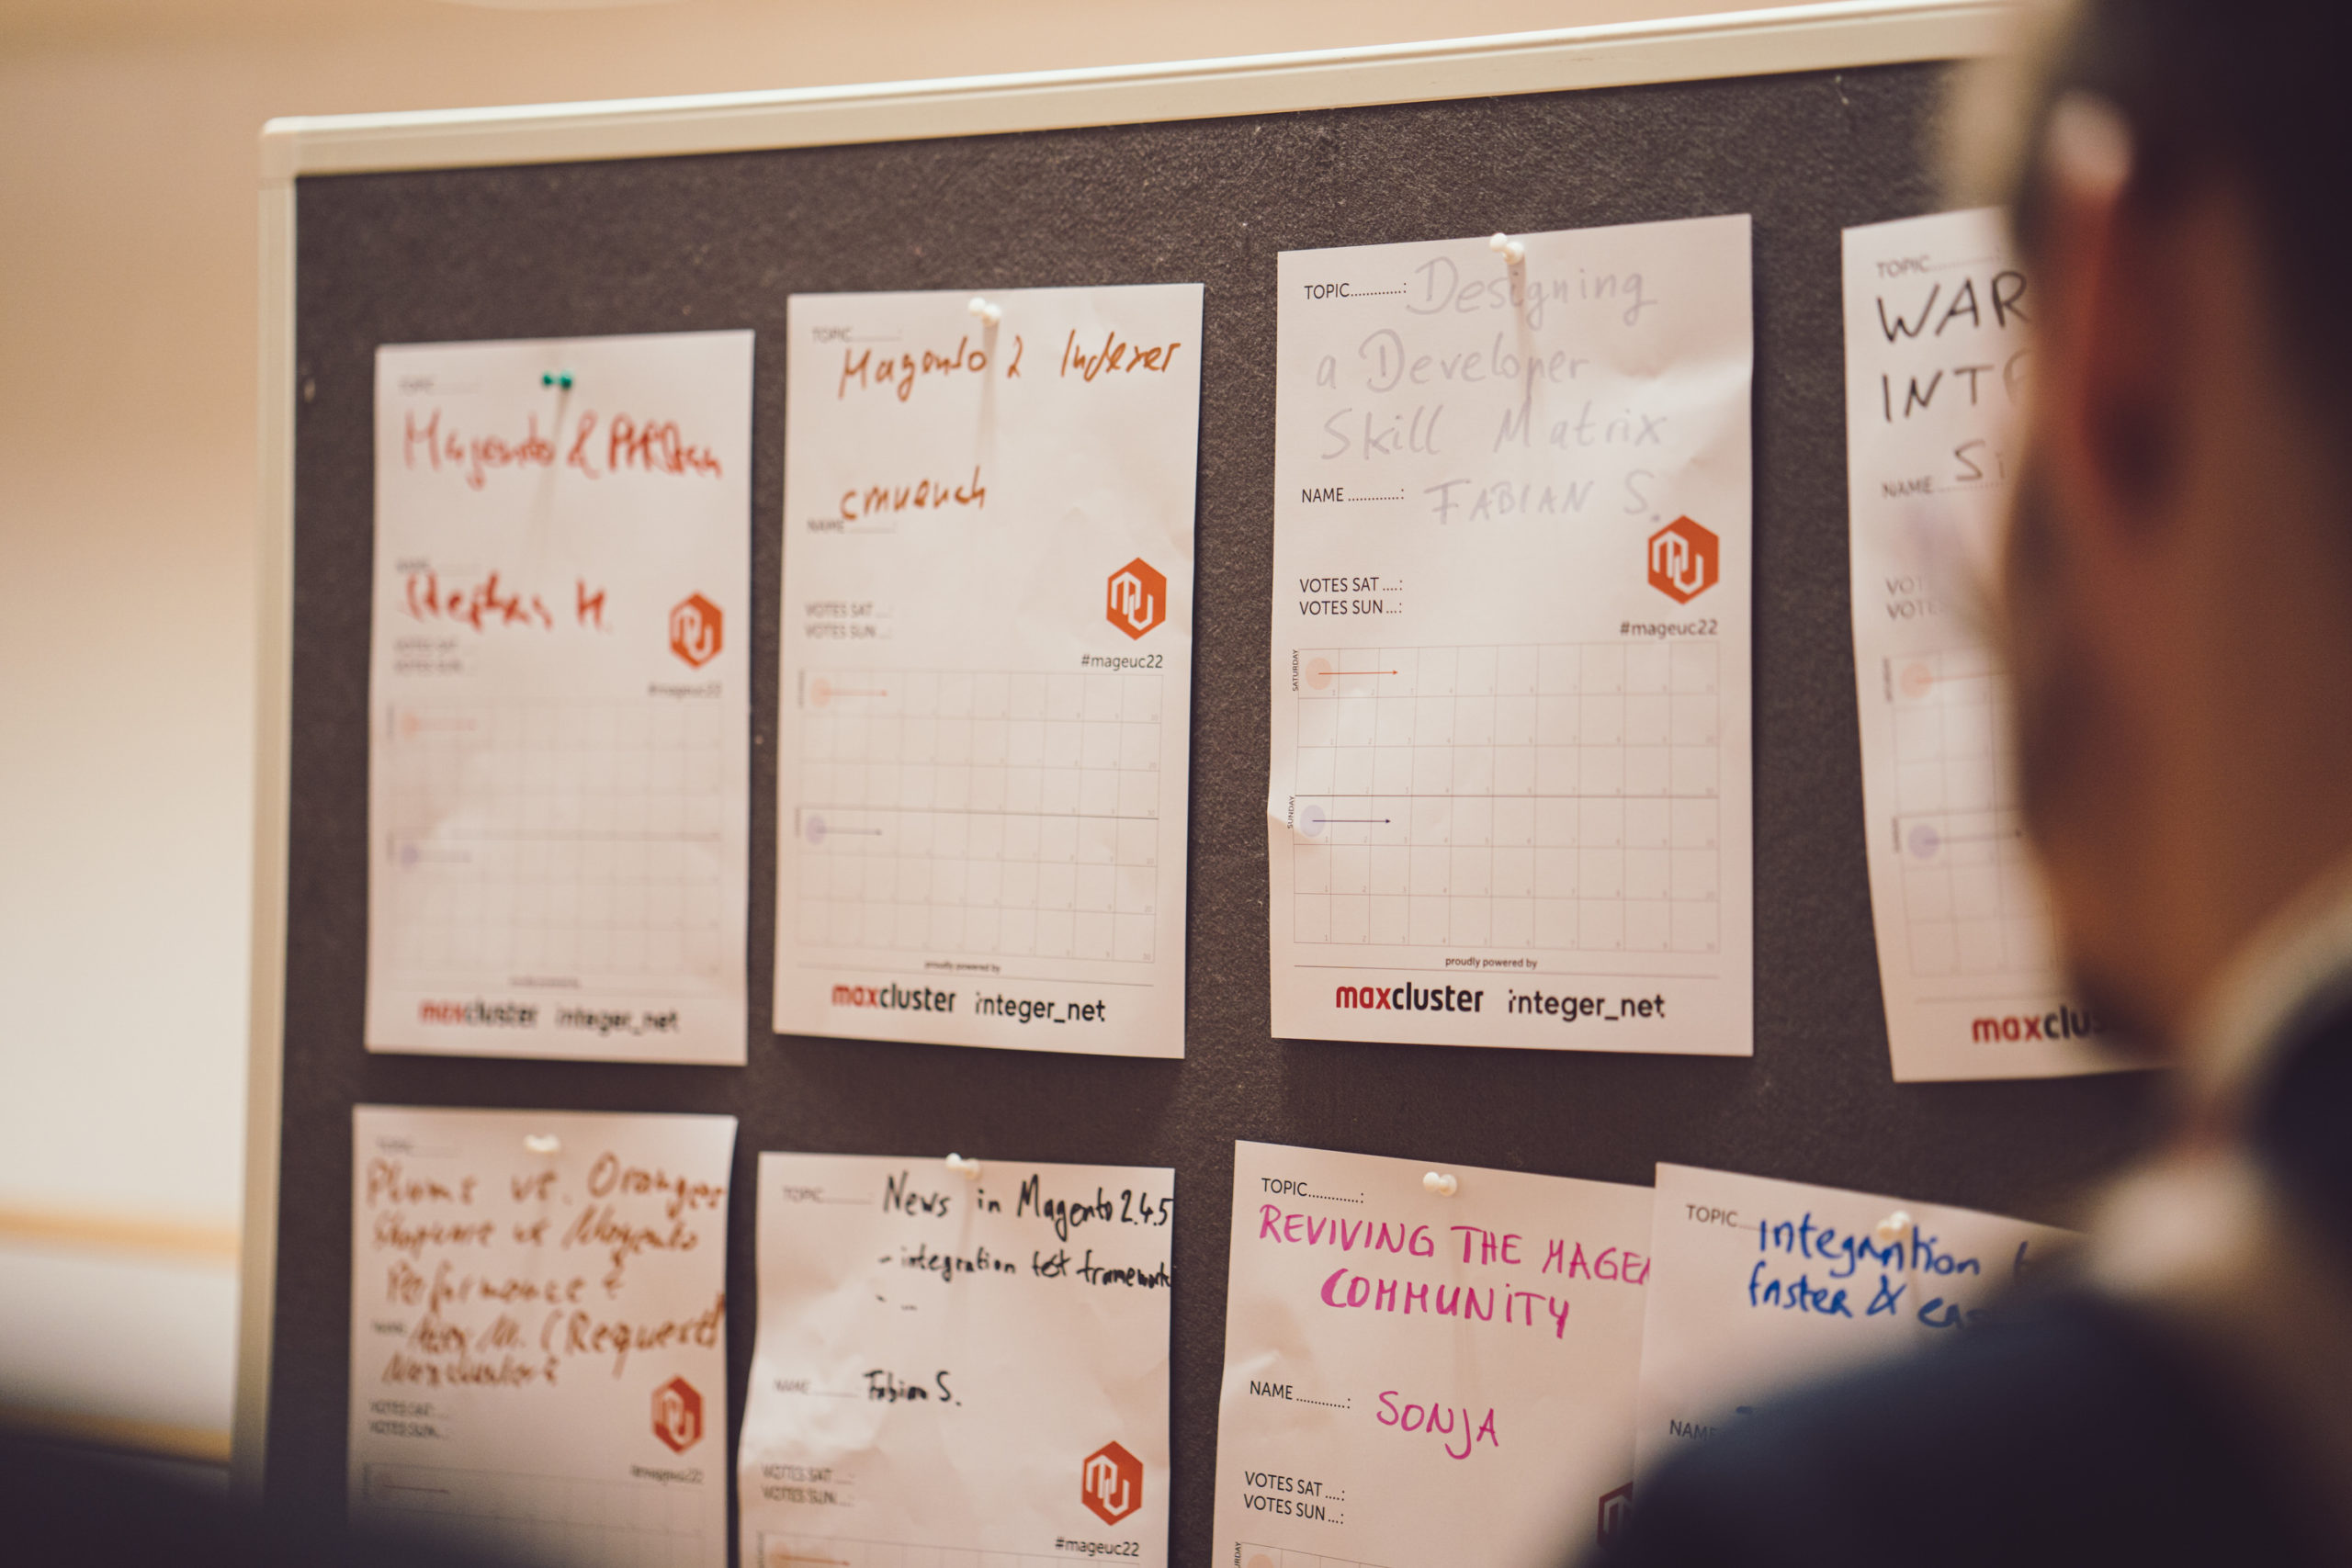 TOPIC
Magento & PHPStan
Stephan H.
VOTES SAT
VOTES SUN
#mageuc22
proudly powered by
maxcluster integer_net
TOPIC
Magento 2 Indexer
cmuench
NAME
VOTES SAT
VOTES SUN
#mageuc22
proudly powered by
maxcluster integer_net
TOPIC............: Designing
a Developer
Skill Matrix
NAME............: FABIAN S.
VOTES SAT....:
VOTES SUN...:
#mageuc22
SATURDAY
SUNDAY
proudly powered by
maxcluster integer_net
TOPIC
WAR
INT
NAME Si
maxclus
Plums vs. Oranges
Shopware vs Magento
Performance
Alex M. (Request)
VOTES SAT
VOTES SUN
#mageuc22
TOPIC
News in Magento 2.4.5
- integration test framework
- –
NAME Fabian S.
VOTES SAT
VOTES SUN
#mageuc22
TOPIC............:
REVIVING THE MAGEN
COMMUNITY
NAME............: SONJA
VOTES SAT....:
VOTES SUN...:
TOPIC
faster &
NAME